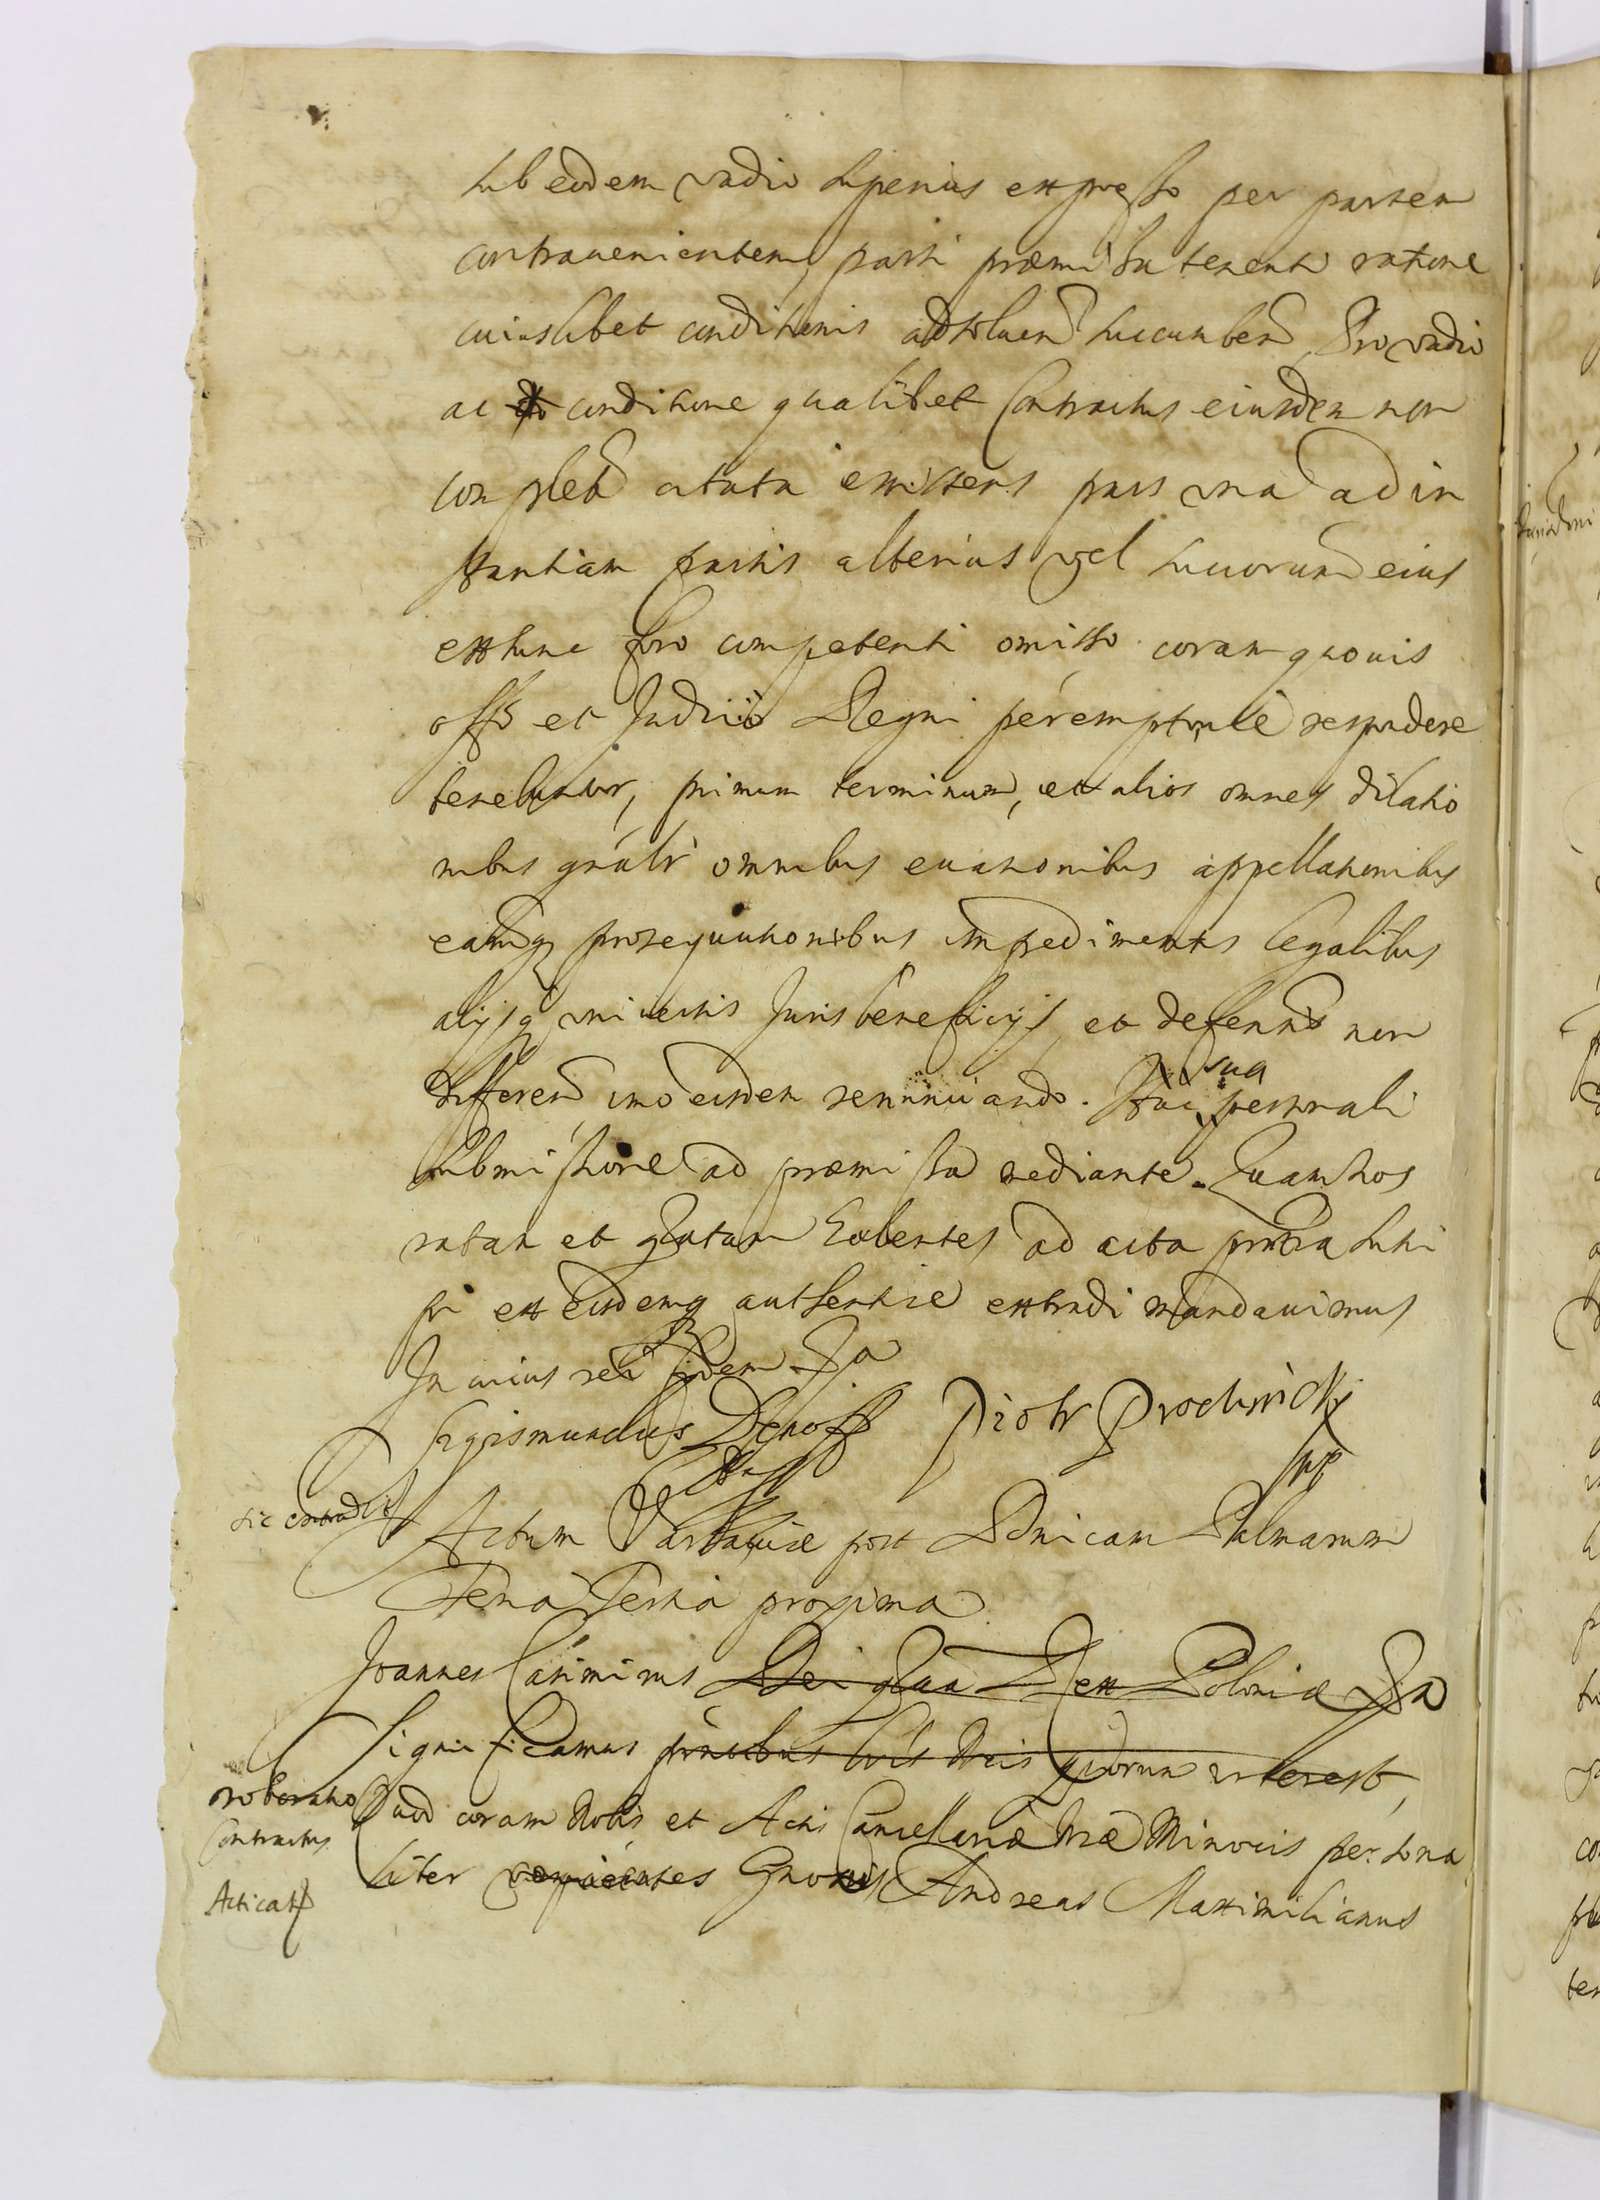 sub eodem vadio superius expresso per partem
contravenientem, parti præmissa tenenti ratione
cuiuslibet conditionis adsoluen succumben, Pro vadio
ac conditione qualibet Contractus eiusdem non
complet citata existens pars una ad in
stantiam partis alterius vel succorum eius
extunc foro competenti omisso coram quovis
offo et Judicio Regni peremptorie respondere
tenebuntur, primum terminum, et alios omnes dilatio
nibus gnalr omnibus evasionibus appellationibus
earumq prosequutionibus impedimentis legalibus
alijsq universis Juris beneficijs et defensis non
differen imo eisdem renunciando. Hac sua personali
submissione ad præmissa mediante. Quam nos
ratam et gratam habentes ad acta pntia susci
pi ex eisdemq authentice extradi mandavimus
In cuius rei fidem
Sigismundus Denoff Piotr Prochnicki
mp
sic extradit
Actum Varsaviæ post Dnicam Palmarum
Feria Tertia proxima
Joannes Casimirus Dei gtia Rex Poloniæ
Significamus pntibus lris nris quorum interest,
roboratio
Quod coram Nobis et Actis Cancellariæ Nræ Minoris persona
Contractus
liter venientes Gnosus Andreas Maximilianus
Acticat